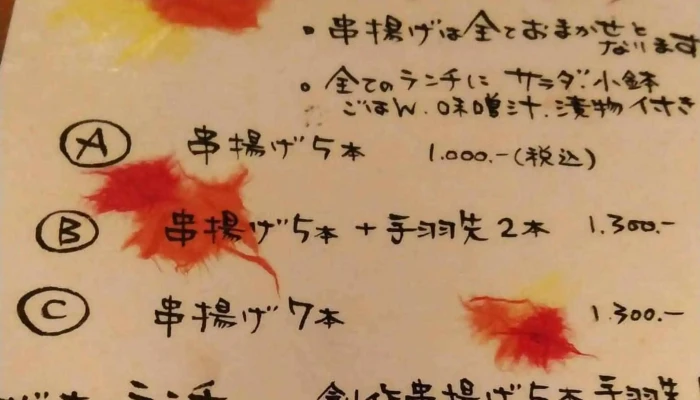 ・串揚げは全ておまかせと
なります
・全てのランチに サラダ.小鉢
ごはん.味噌汁.漬物 付き
A 串揚げ5本 1.000.-(税込)
B 串揚げ5本+手羽先2本 1.300.-
C 串揚げ7本 1.300.-
ランチ 創作串揚げ5本 手羽先